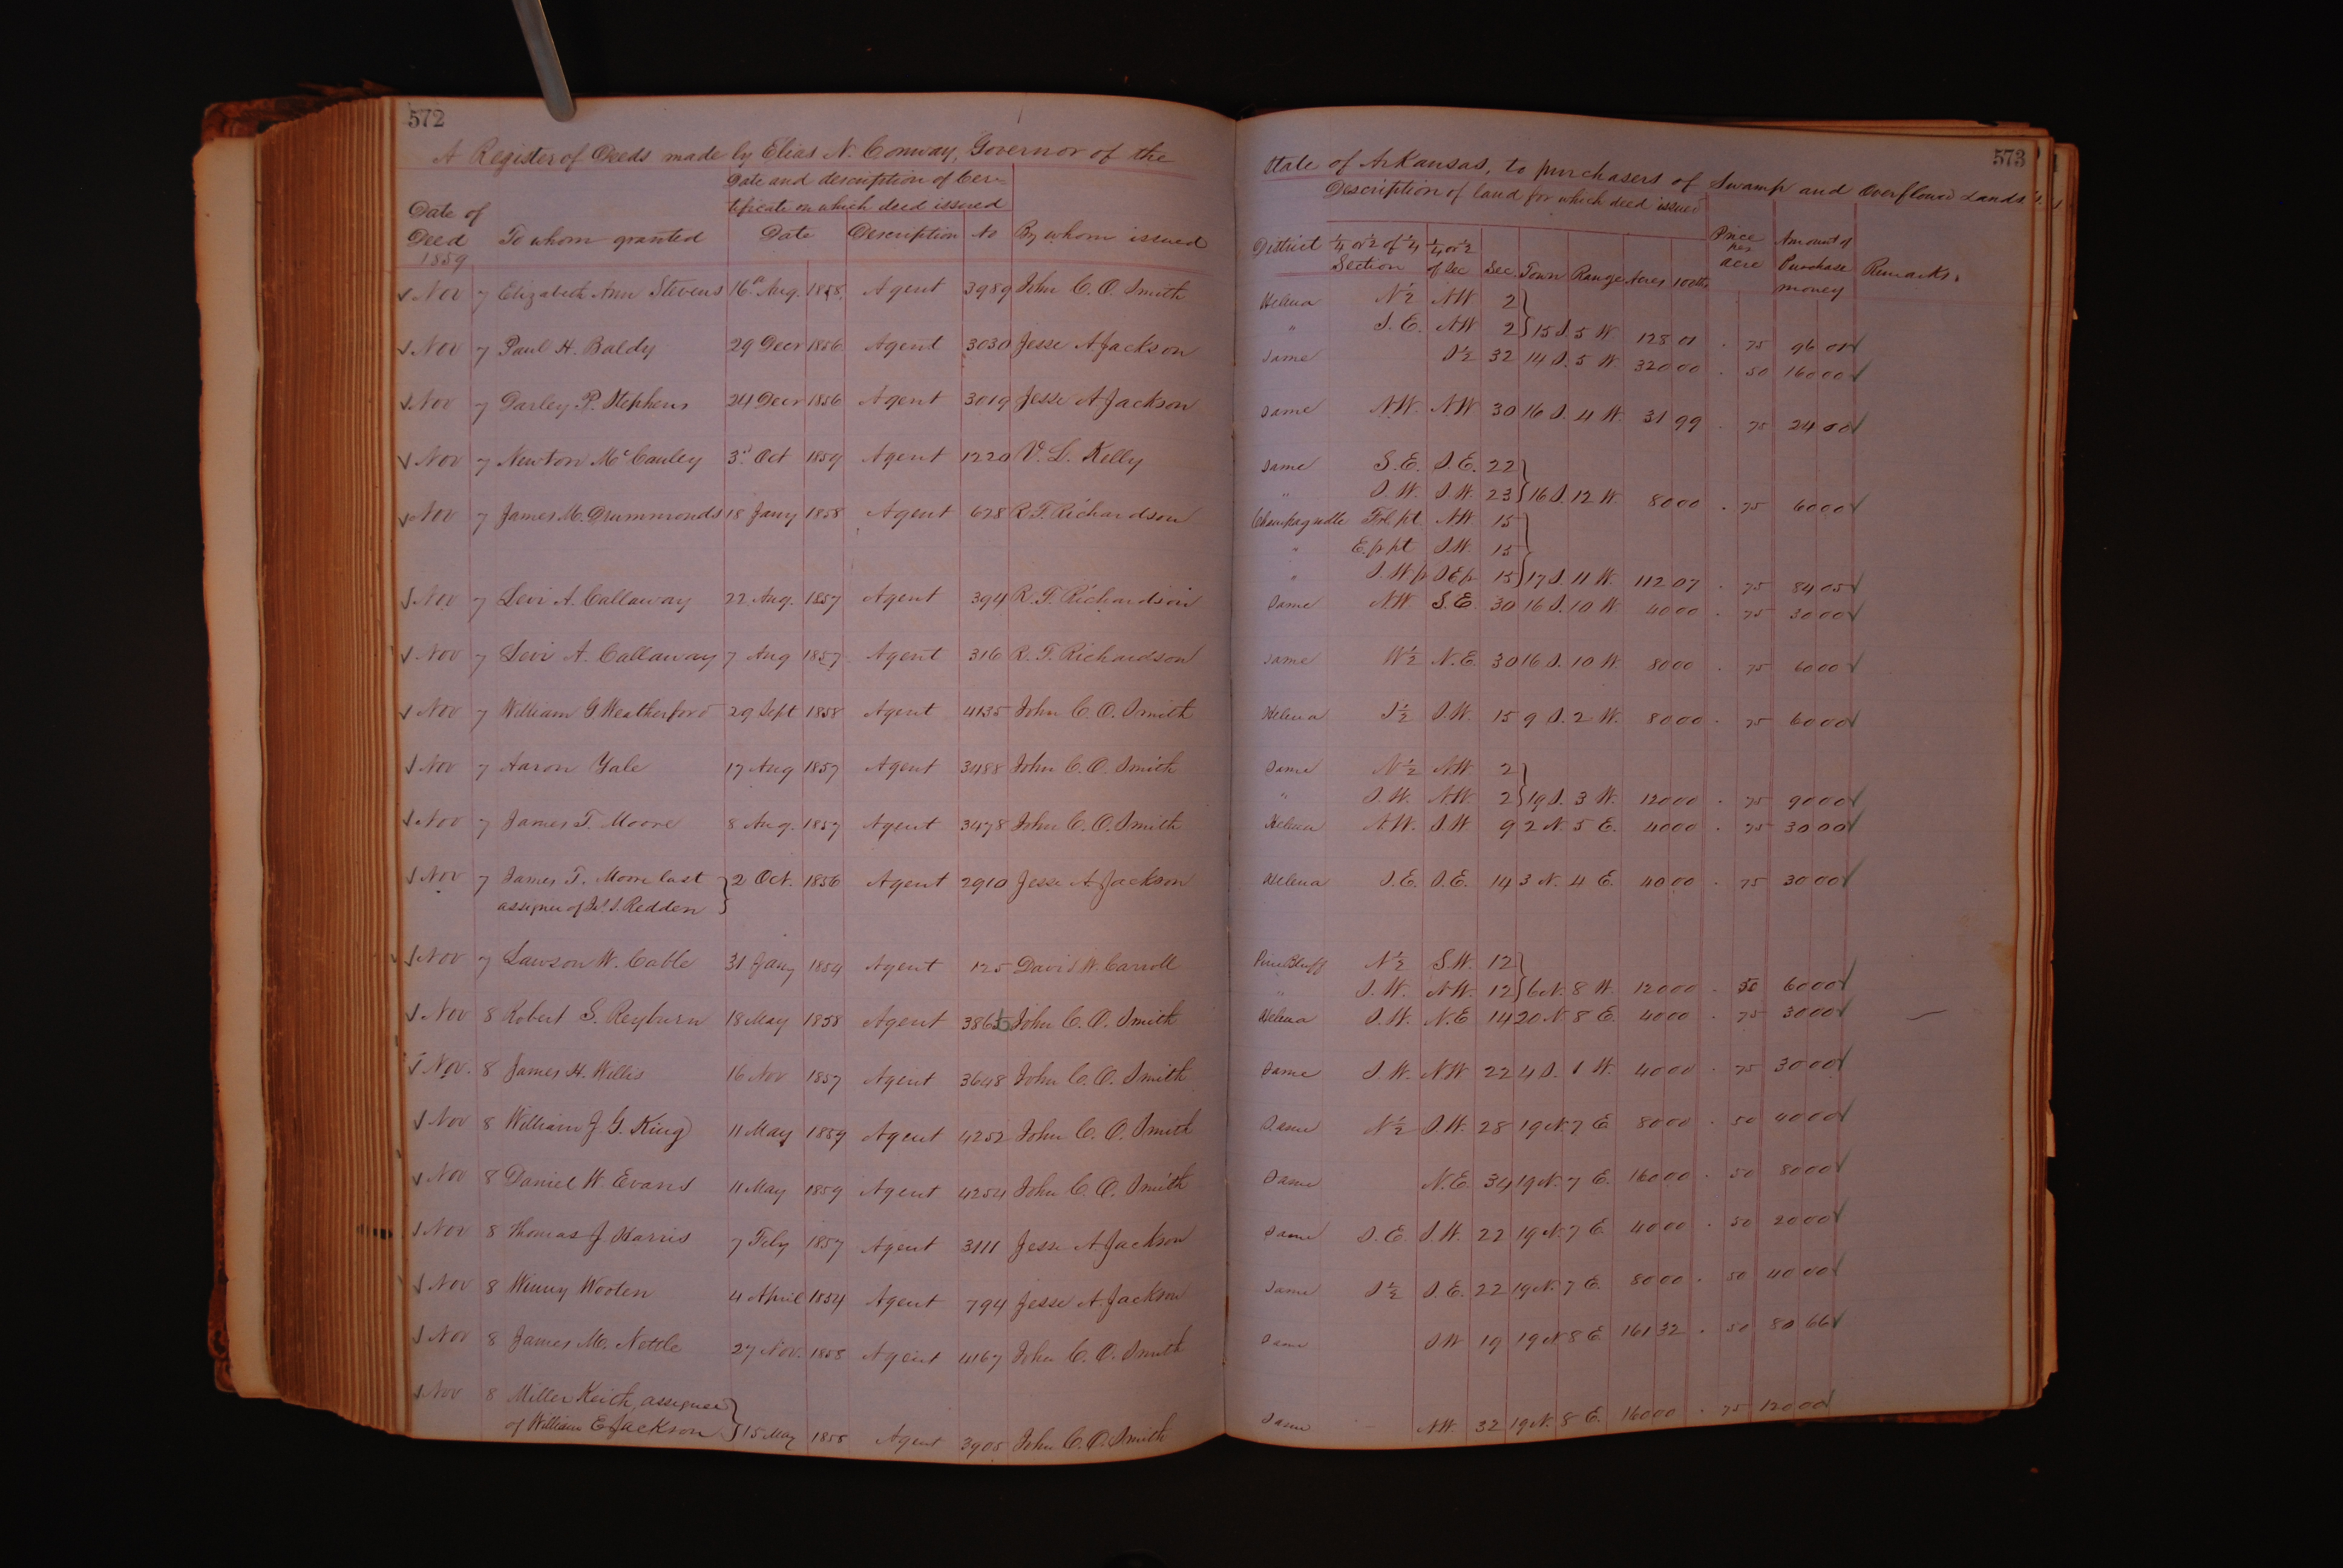 572
A Register of Deeds made by Elias N. Conway, Governor of the
Date of Deed 1859 To whom granted Date and description of Certificate on which deed issued By whom issued
Date Description No
√ Nov 7 Elizabeth Ann Stevens 16th Aug. 1858, Agent 3989 John C. O. Smith
√ Nov 7 Paul H. Baldy 29 Decr 1856 Agent 3030 Jesse A Jackson
√ Nov 7 Darley P. Stephens 24 Decr 1856 Agent 3019 Jesse A Jackson
√ Nov 7 Newton McCauley 3d Oct 1859 Agent 1220 V. L. Kelly
√ Nov 7 James M. Drummonds 18 Jany 1858 Agent 628 R. T. Richardson
√ Nov 7 Levi A. Callaway 22 Aug. 1857 Agent 394 R. T. Richardson
√ Nov 7 Levi A. Callaway 7 Aug 1857 Agent 316 R. T. Richardson
√ Nov 7 William G Weatherford 29 Sept 1858 Agent 4135 John C. O. Smith
√ Nov 7 Aaron Yale 17 Aug 1857 Agent 3488 John C. O. Smith
√ Nov 7 James T. Moore 8 Aug. 1857 Agent 3478 John C. O. Smith
√ Nov 7 James T. Moore last } 2 Oct. 1856 Agent 2910 Jesse A Jackson
assignee of S. Redden }
√ Nov 7 Lawson W. Cable 31 Jany 1854 Agent 125 David W. Carroll
√ Nov 8 Robert S. Reyburn 18 May 1858 Agent 3865 John C. O. Smith
√ Nov. 8 James H. Willis 16 Nov 1857 Agent 3648 John C. O. Smith
√ Nov 8 William J. G. King 11 May 1859 Agent 4252 John C. O. Smith
√ Nov 8 Daniel W. Evans 11 May 1859 Agent 4254 John C. O. Smith
√ Nov 8 Thomas J. Harris 7 Feby 1857 Agent 3111 Jesse A. Jackson
√ Nov 8 Winny Wooten 4 April 1854 Agent 794 Jesse A. Jackson
√ Nov 8 James M. Nettle 27 Nov. 1858 Agent 4167 John C. O. Smith
√ Nov 8 Miller Keith, assignee }
of William E Jackson } 15 May 1858 Agent 3905 John C. O. Smith
573
State of Arkansas, to purchasers of Swamp and Overflowed Lands.
Description of land for which deed issued
District ¼ or ½ of ¼ Section ¼ or ½ of Sec Sec. Town Range Acres 100ths Price per acre Amount of Purchase money Remarks.
Helena N½ NW 2 }
" S.E. NW 2 } 15 S. 5 W. 128 01 . 75 96 01 √
Same S½ 32 14 S. 5 W. 320 00 . 50 160 00 √
Same N.W. NW 30 16 S. 4 W. 31 99 . 75 24 00 √
Same S.E. S.E. 22 }
" S.W. S.W. 23 } 16 S. 12 W. 80 00 . 75 60 00 √
Champagnolle Frl. pt NW 15 }
" E. fr pt S.W. 15 }
" S.W fr S E fr 15 } 17 S. 11 W. 112 07 . 75 84 05 √
Same N.W S.E. 30 16 S. 10 W. 40 00 . 75 30 00 √
Same W½ N.E. 30 16 S. 10 W. 80 00 . 75 60 00 √
Helena S½ S.W. 15 9 S. 2 W. 80 00 . 75 60 00 √
Same N½ NW 2 }
" S.W. N.W. 2 } 19 S. 3 W. 120 00 . 75 90 00 √
Helena N.W. S.W 9 2 N. 5 E. 40 00 . 75 30 00 √
Helena S.E. S.E. 14 3 N. 4 E. 40 00 . 75 30 00 √
Pine Bluff N½ S.W. 12 }
" S.W. NW. 12 } 6 N. 8 W. 120 00 . 50 60 00 √
Helena S.W. N.E 14 20 N 8 E. 40 00 . 75 30 00 √
Same S.W. NW 22 4 S. 1 W. 40 00 . 75 30 00 √
Same N½ S.W. 28 19 N. 7 E 80 00 . 50 40 00 √
Same N.E. 34 19 N. 7 E. 160 00 . 50 80 00 √
Same S.E. S.W. 22 19 N. 7 E 40 00 . 50 20 00 √
Same S½ S.E. 22 19 N. 7 E. 80 00 . 50 40 00 √
Same S.W 19 19 N 8 E. 161 32 . 50 80 66 √
Same NW. 32 19 N. 8 E. 160 00 . 75 120 00 √